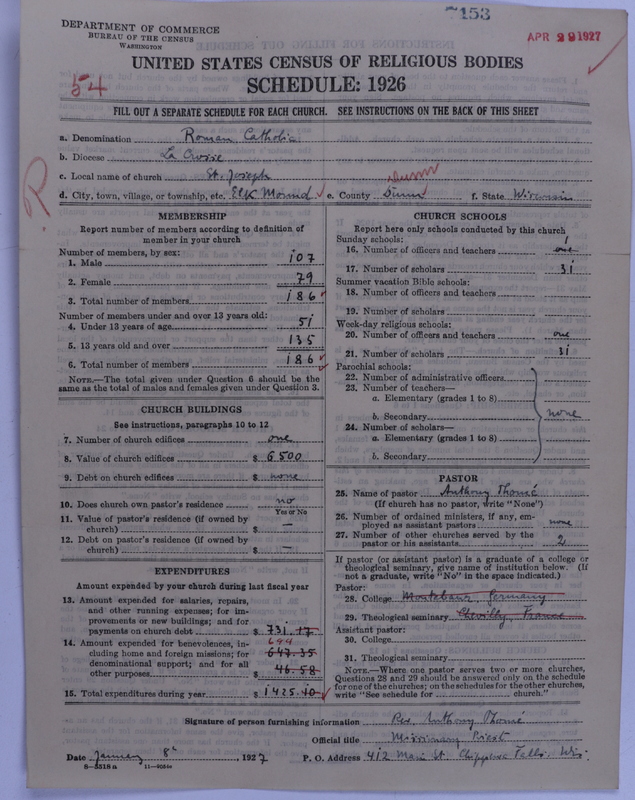 7153
DEPARTMENT OF COMMERCE
BUREAU OF THE CENSUS
WASHINGTON
APR 29 1927
UNITED STATES CENSUS OF RELIGIOUS BODIES
54
SCHEDULE: 1926
FILL OUT A SEPARATE SCHEDULE FOR EACH CHURCH. SEE INSTRUCTIONS ON THE BACK OF THIS SHEET
a. Denomination Roman Catholic
b. Diocese La Crosse
c. Local name of church St. Joseph
Dunn
d. City, town, village, or township, etc. Elk Mound e. County Dunn f. State Wisconsin
MEMBERSHIP
Report number of members according to definition of
member in your church
Number of members, by sex:
1. Male 107
2. Female 79
3. Total number of members 186
Number of members under and over 13 years old:
4. Under 13 years of age 51
5. 13 years old and over 135
6. Total number of members 186
NOTE.—The total given under Question 6 should be the
same as the total of males and females given under Question 3.
CHURCH BUILDINGS
See instructions, paragraphs 10 to 12
7. Number of church edifices one
8. Value of church edifices $ 6500
9. Debt on church edifices $ none
10. Does church own pastor's residence no
Yes or No
11. Value of pastor's residence (if owned by
church) $ —
12. Debt on pastor's residence (if owned by
church) $ —
EXPENDITURES
Amount expended by your church during last fiscal year
13. Amount expended for salaries, repairs,
and other running expenses; for im-
provements or new buildings; and for
payments on church debt $ 731.17
14. Amount expended for benevolences, in-
cluding home and foreign missions; for
denominational support; and for all
other purposes
694
647.35
46.58
15. Total expenditures during year $ 1425.10
CHURCH SCHOOLS
Report here only schools conducted by this church
Sunday schools:
1
16. Number of officers and teachers one
17. Number of scholars 31
Summer vacation Bible schools:
18. Number of officers and teachers
19. Number of scholars
Week-day religious schools:
20. Number of officers and teachers one
21. Number of scholars 31
Parochial schools:
22. Number of administrative officers
23. Number of teachers—
a. Elementary (grades 1 to 8)
b. Secondary none
24. Number of scholars—
a. Elementary (grades 1 to 8)
b. Secondary
PASTOR
25. Name of pastor Anthony Thomé
(If church has no pastor, write "None")
26. Number of ordained ministers, if any, em-
ployed as assistant pastors none
27. Number of other churches served by the
pastor or his assistants 2
If pastor (or assistant pastor) is a graduate of a college or
theological seminary, give name of institution below. (If
not a graduate, write "No" in the space indicated.)
Pastor:
28. College Montabaur, Germany
29. Theological seminary Chevilly, France
Assistant pastor:
30. College
31. Theological seminary
NOTE.—Where one pastor serves two or more churches,
Questions 28 and 29 should be answered only on the schedule
for one of the churches; on the schedules for the other churches,
write "See schedule for church."
Signature of person furnishing information Rev. Anthony Thomé
Official title Missionary Priest
Date January 8th, 1927 P. O. Address 412 Main St. Chippewa Falls, Wis.
8—5518a 11—9584a